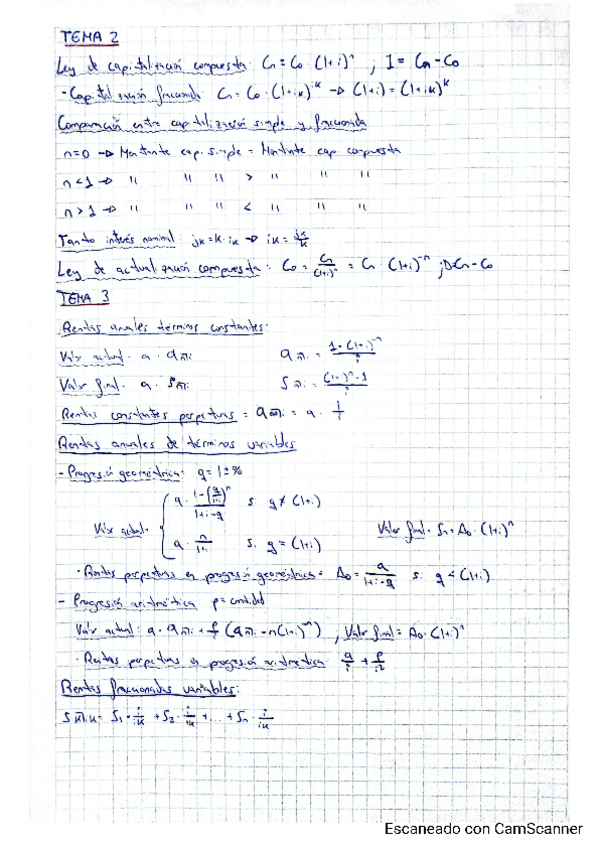 TEMA 2
Ley de capitalización compuesta: Cn = Co · (1+i)^n ; I = Cn - Co
· Capitalización fraccionada: Cn = Co · (1+ik)^n·k → (1+i) = (1+ik)^k
Comparación entre capitalización simple y fraccionada
n=0 → Montante cap. simple = Montante cap compuesta
n<1 → " " " > " " "
n>1 → " " " < " " "
Tanto interés nominal: jk = k·ik → ik = jk/k
Ley de actualización compuesta: Co = Cn/(1+i)^n = Cn · (1+i)^-n ; D = Cn - Co
TEMA 3
Rentas anuales términos constantes:
Valor actual: a · a n̅|i a n̅|i = 1-(1+i)^-n/i
Valor final: a · S n̅|i S n̅|i = (1+i)^n-1/i
Rentas constantes perpetuas = a ∞̅|i = a · 1/i
Rentas anuales de términos variables
- Progresión geométrica: q = 1±%
Valor actual: { a · 1-(q/1+i)^n/1+i-q si q≠(1+i)
a · n/1+i si q = (1+i)
Valor final: Sn = Ao · (1+i)^n
· Rentas perpetuas en progresión geométrica = Ao = a/1+i-q si q<(1+i)
- Progresión aritmética p = cantidad
Valor actual: a · a n̅|i + p/i (a n̅|i - n(1+i)^-n) , Valor final = Ao · (1+i)^n
· Rentas perpetuas en progresión aritmética: a/i + p/i²
Rentas fraccionadas variables:
S1 · i/ik + S2 · i/ik + ... + Sn · i/ik
Escaneado con CamScanner